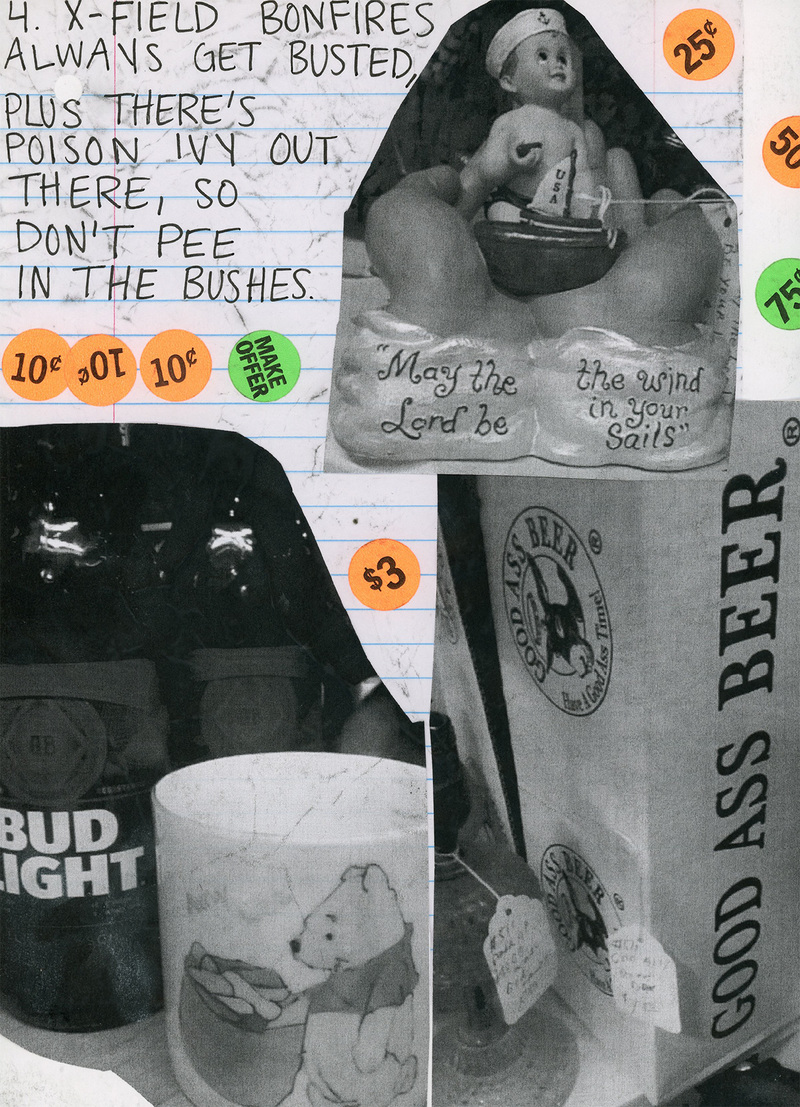 4. X-FIELD BONFIRES
ALWAYS GET BUSTED,
PLUS THERE'S
POISON IVY OUT
THERE, SO
DON'T PEE
IN THE BUSHES.
25¢
50
75¢
USA
10¢
10¢
10¢
MAKE
OFFER
"May the
Lord be
the wind
in your
Sails"
$3
GOOD ASS BEER®
Have A Good Ass Time!
GOOD ASS BEER®
GOOD ASS BEER®
AB
BUD
LIGHT